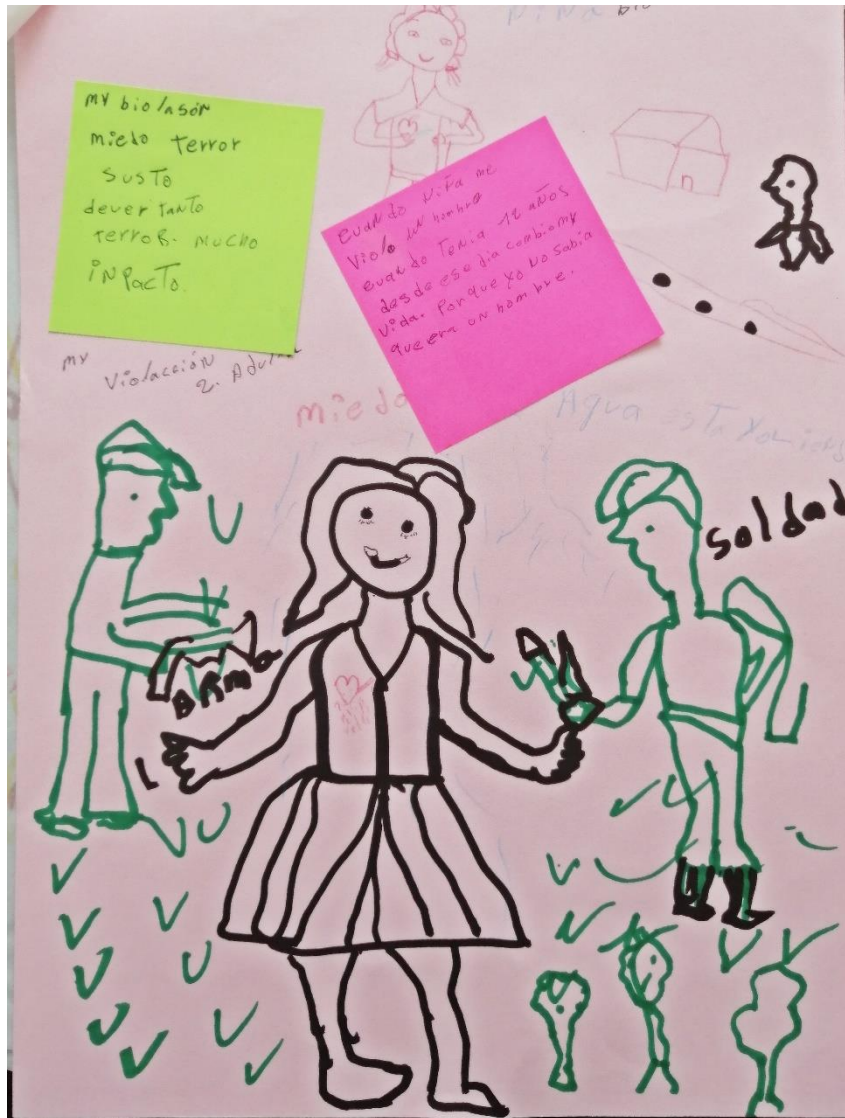 Niña
my biolasón
miedo terror
susto
dever tanto
terror. mucho
inpacto.
cuando niña me
violo un hombre
cuando tenia 12 años
desde ese dia cambio my
vida. Porque yo no sabia
que era un hombre.
my violacción
2. Adulta
miedo
Agua
soldad
ARma